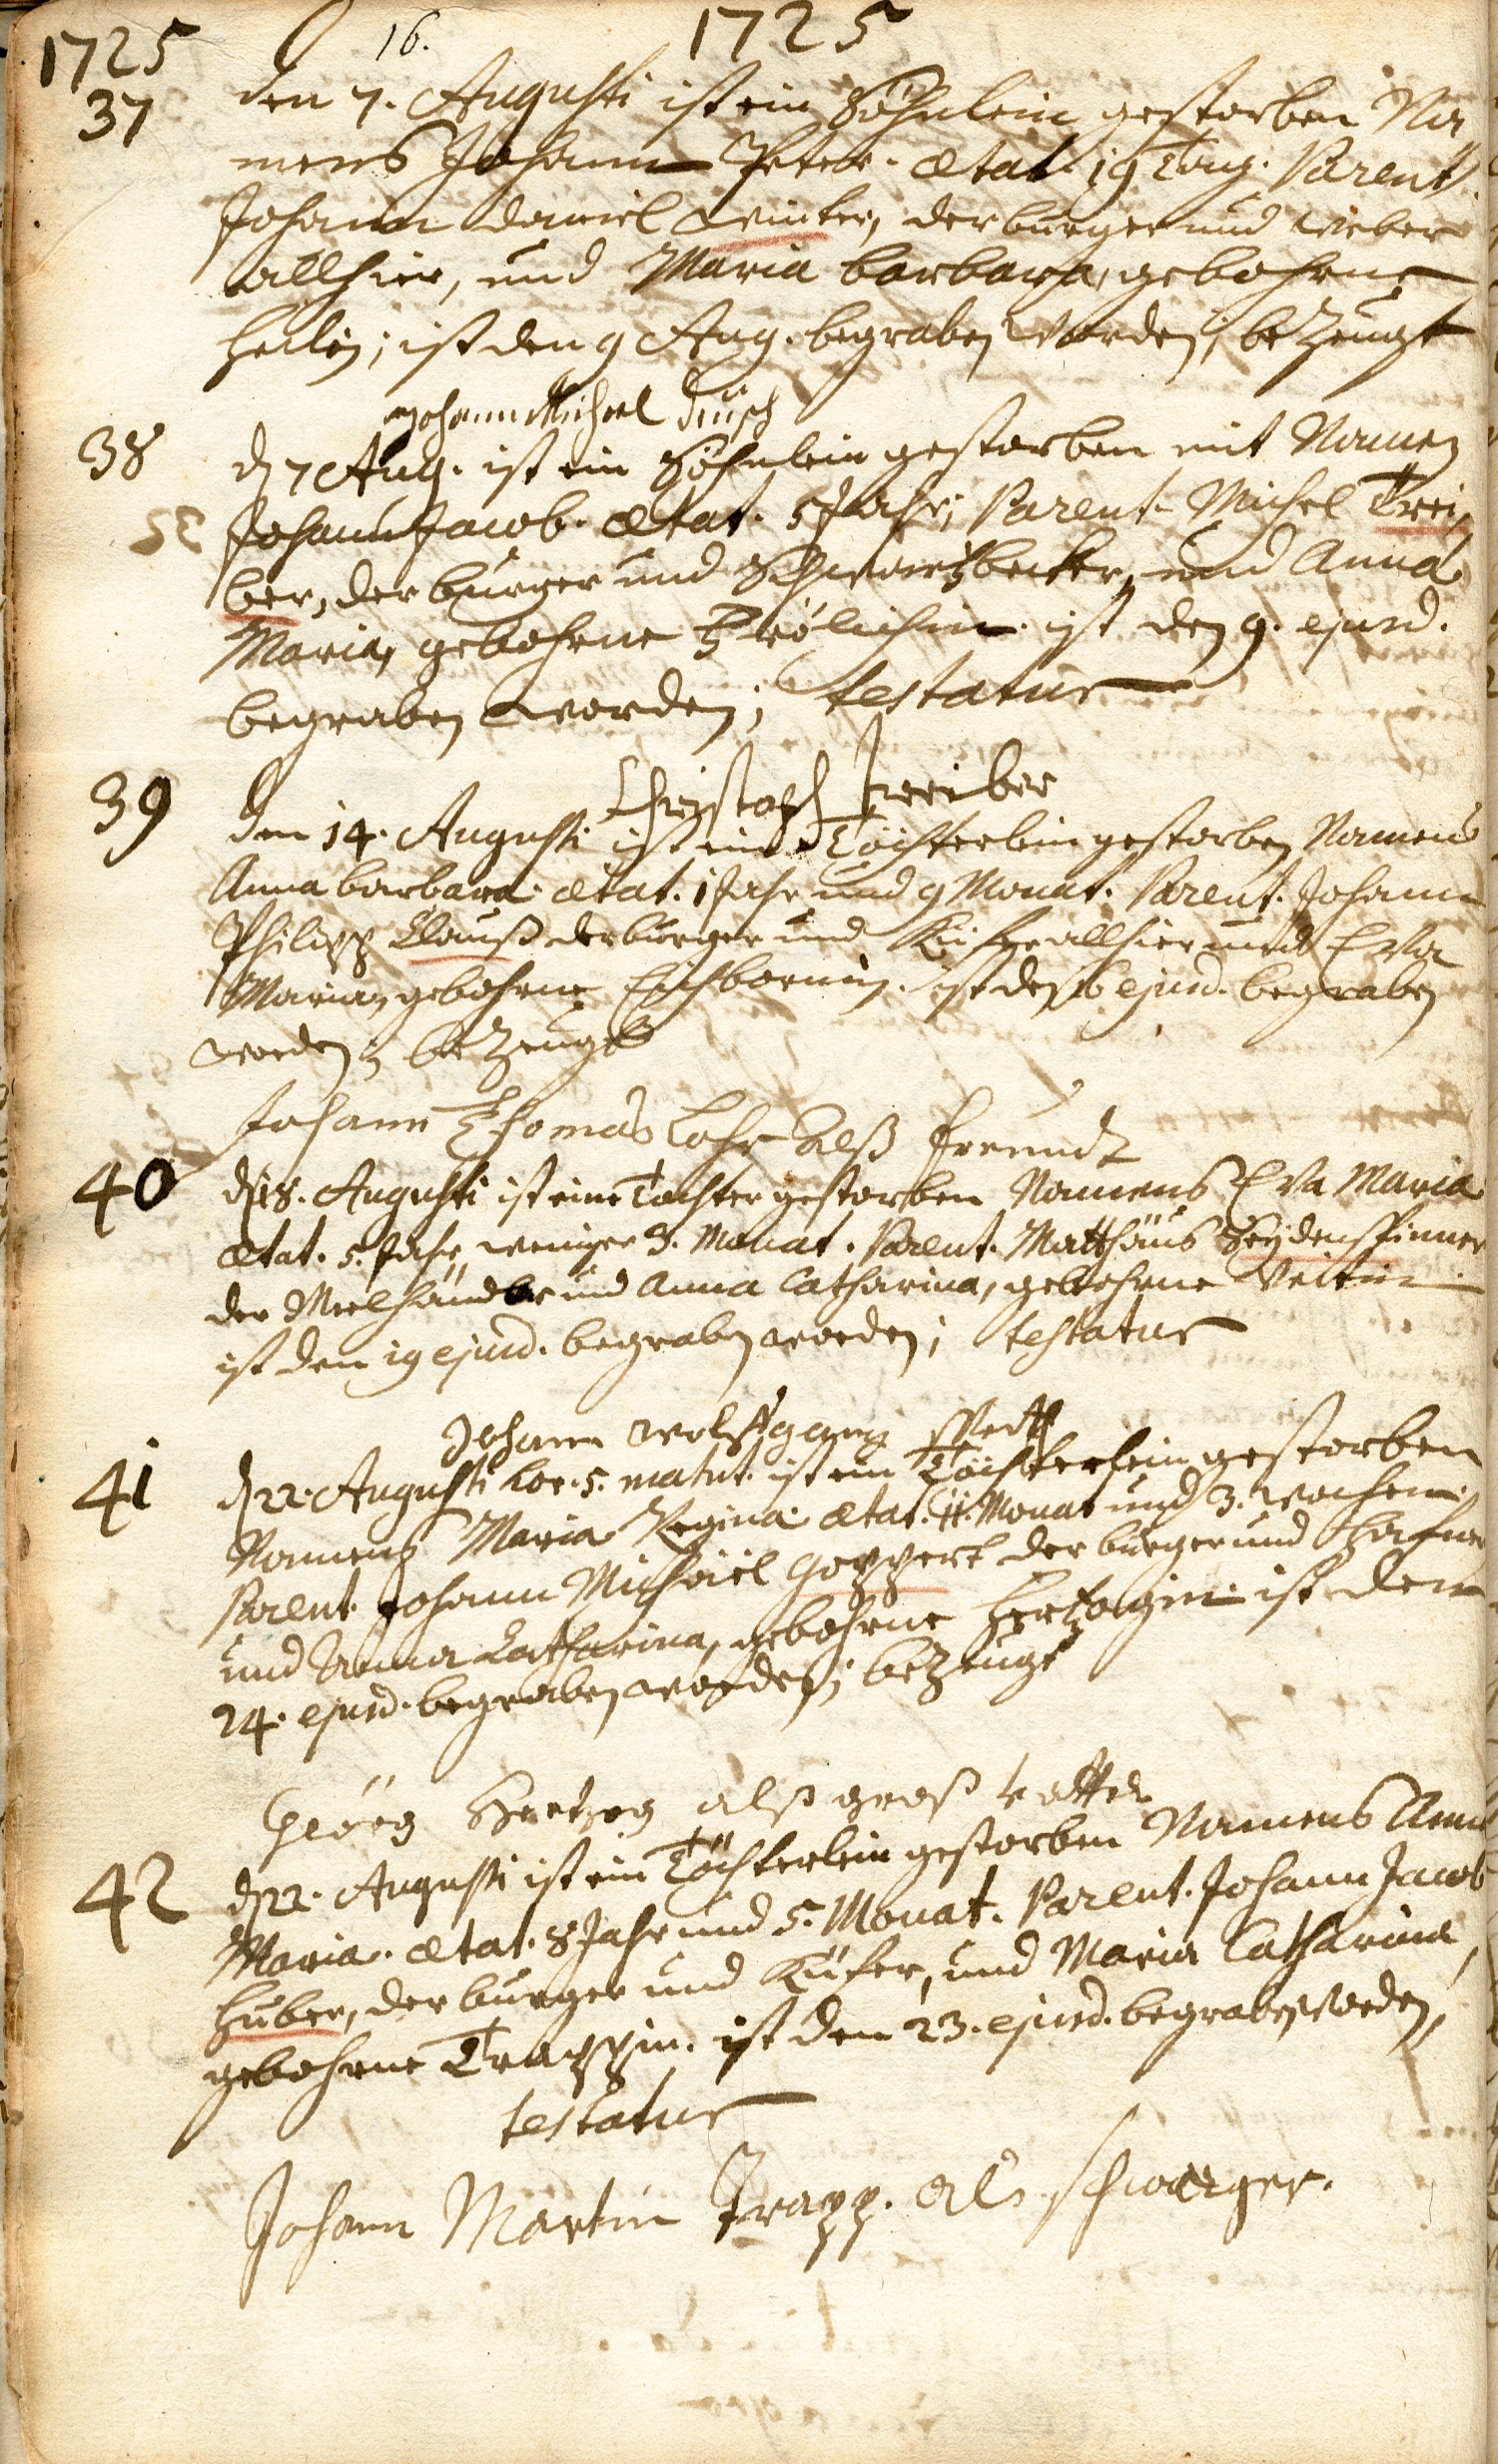 1725 16. 1725
37 den 7. Augusti ist ein Söhnlein gestorben Na
mens Johann Peter. ætat. 19 Tag. Parent.
Johann Daniel Winter, der burger und Weber
allhier, und Maria Barbara, gebohrne
Heilin; ist den 9 Aug. begraben worden, bezeugt
Johann Michael
38 d. 7 Aug. ist ein Söhnlein gestorben mit Namen
Johann Jacob. ætat. 5 Jahr; Parent. Michel Trei,
ber, der burger und Schwartzbecker, und Anna
Maria, gebohrne Frölichin. ist den 9. ejusd.
begraben worden; testatur
Christoph Treiber
39 den 14. Augusti ist ein Töchterlein gestorben Namens
Anna Barbara. ætat. 1 Jahr und 9 Monat. Parent. Johann
Philipp Clauß der burger und Küfer allhier und Eva
Maria, gebohrne Eichbornin. ist den 16 ejusd. begraben
worden; bezeugts
Johann Thomas Lohr alß freundt
40 d. 18. Augusti ist eine Tochter gestorben Namens Eva Maria
ætat. 5. Jahr, weniger 3. Monat. Parent. Matthäus Seydenspinner
der Meelhändler und Anna Catharina, gebohrne Veitin
ist den 19 ejusd. begraben worden; testatur
Johann Wolffgang Veith
41 d. 22. Augusti hor. 5. matut. ist ein Töchterlein gestorben
Namens Maria Regina. ætat. 11. Monat und 3. Wochen.
Parent. Johann Michäel Goppert der burger und Hafner
und Anna Catharina, gebohrne Hertzogin. ist den
24. ejusd. begraben worden; bezeugt
Geörg Hertzog alß groß vatter
42 d. 22. Augusti ist ein Töchterlein gestorben Namens Anna
Maria. ætat. 8 Jahr und 5. Monat. Parent. Johann Jacob
Huber, der burger und Küfer, und Maria Catharina,
gebohrne Trappin. ist den 23. ejusd. begraben worden,
testatur
Johann Martin Trapp. als schwager.